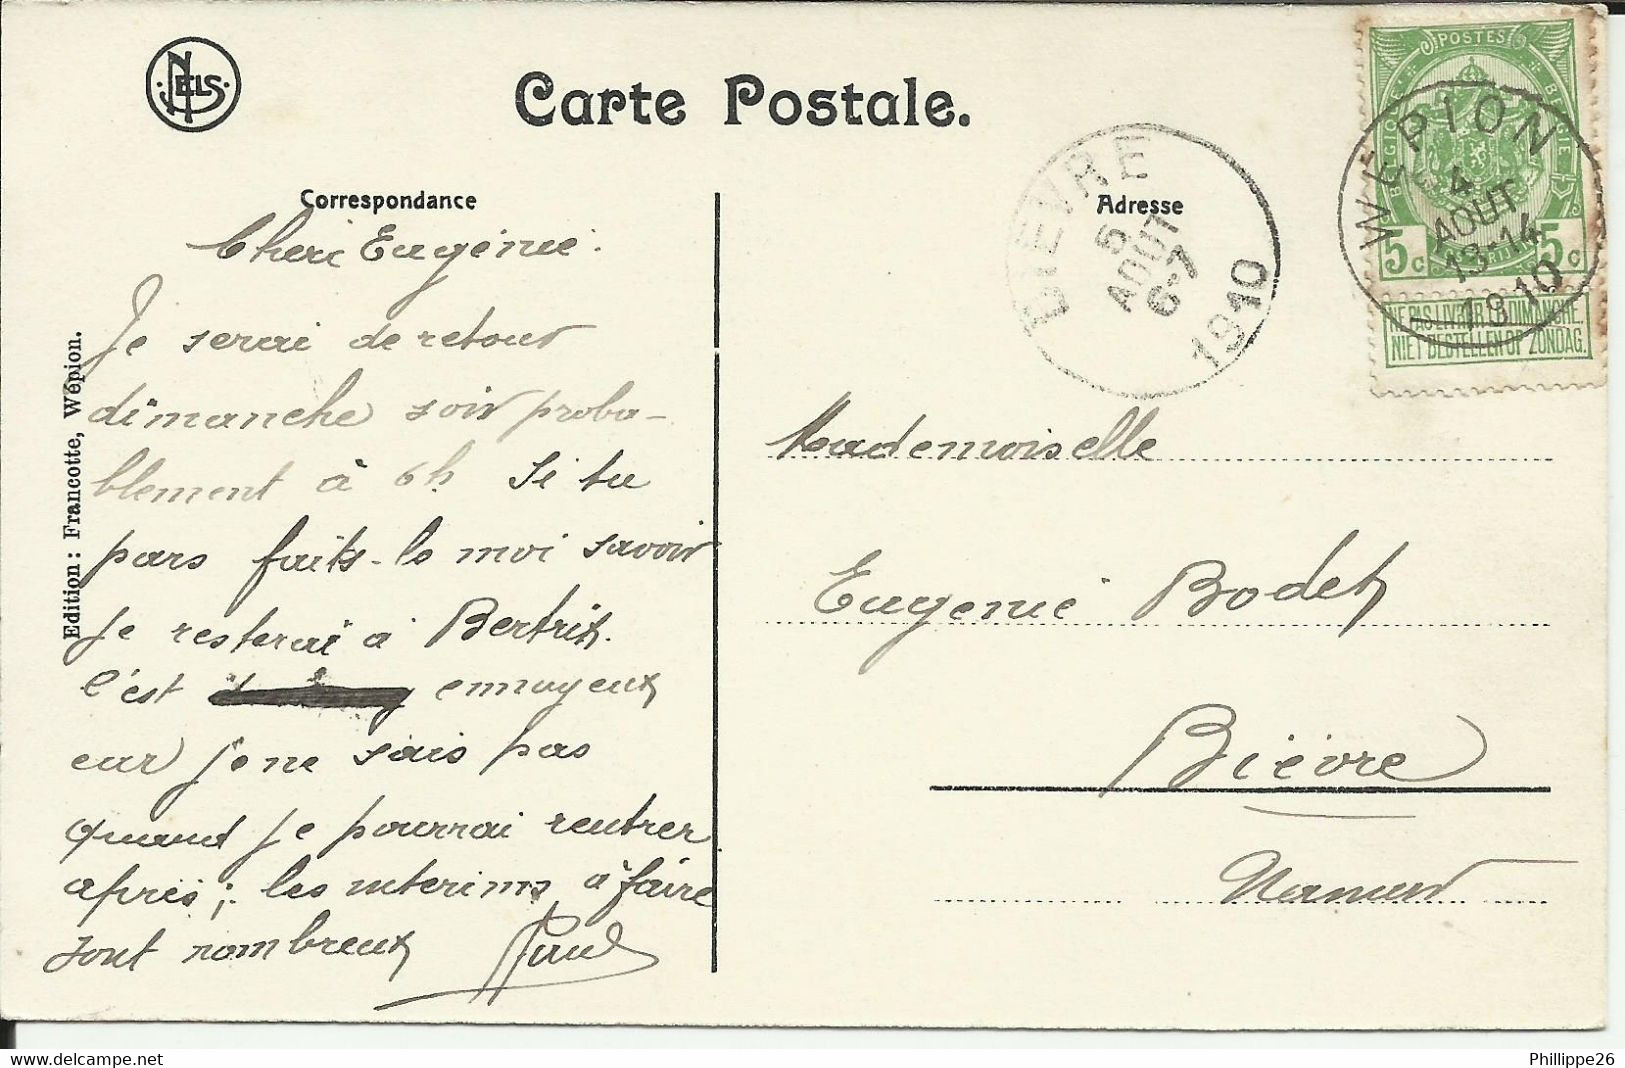 NELS
Carte Postale.
Correspondance
Adresse
Edition : Francotte, Wépion.
Cheri Eugénie.
Je serai de retour
dimanche soir proba-
blement à 6h. Si tu
pars faits-le moi savoir
je resterai à Bertrix.
C'est ennuyeux
car je ne sais pas
quand je pourrai rentrer
après; les interims à faire
sont nombreux Paul
BIEVRE
5
AOUT
6-7
1910
POSTES
BELGIQUE BELGIE
5c 5c
NE PAS LIVRER LE DIMANCHE.
NIET BESTELLEN OP ZONDAG.
WEPION
4
AOUT
13-14
1910
Mademoiselle
Eugenie Bodet
Bièvre
Namur
Phillippe26